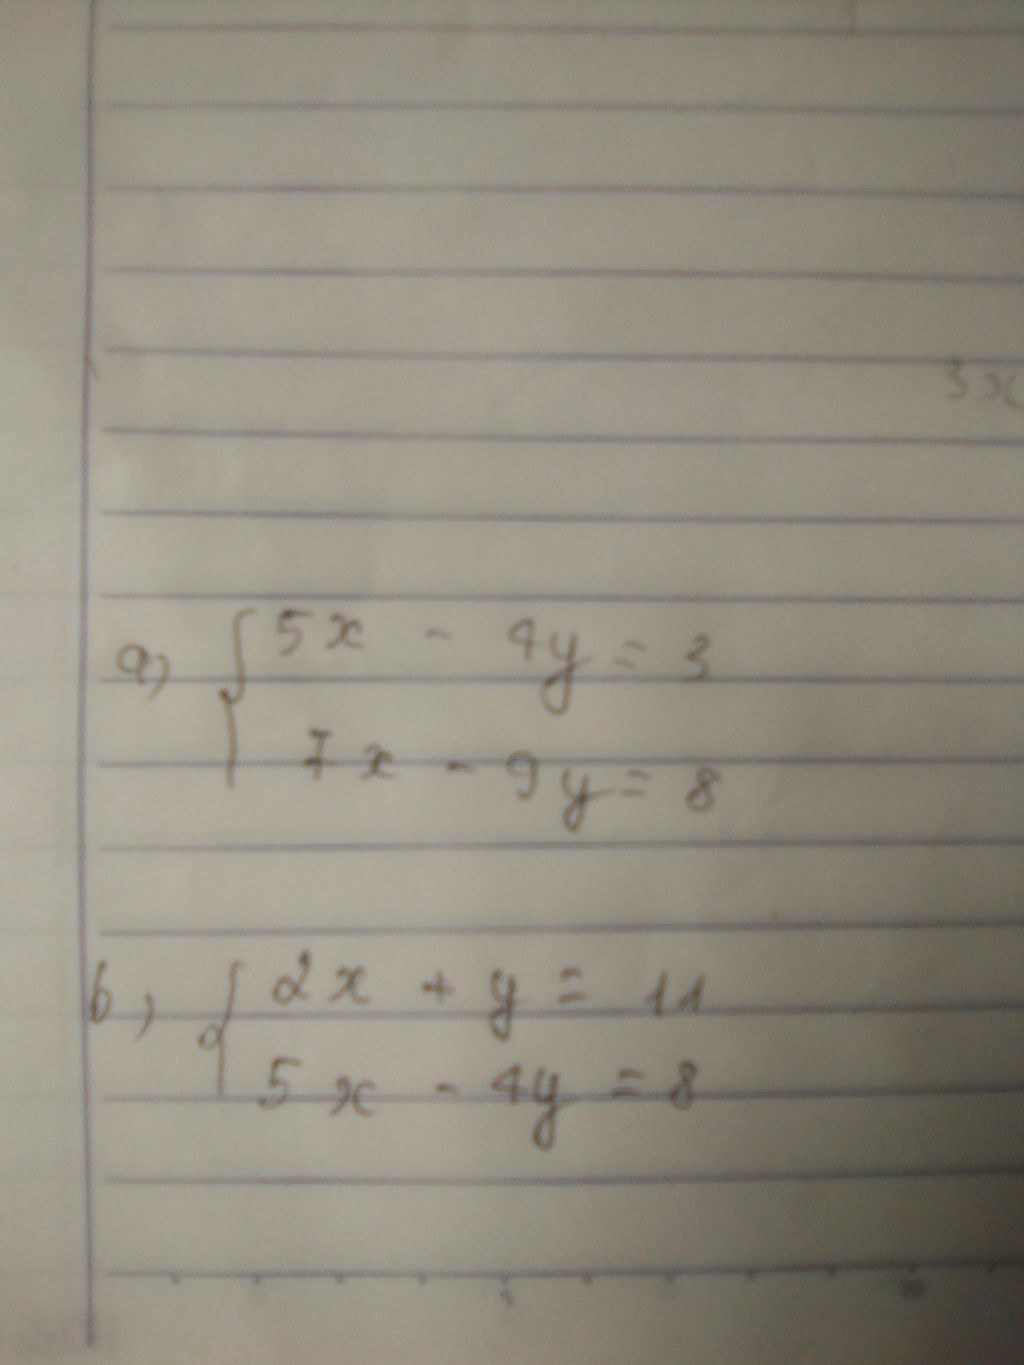 3x
a) { 5x - 4y = 3
7x - 9y = 8
b) { 2x + y = 11
5x - 4y = 8
5 10